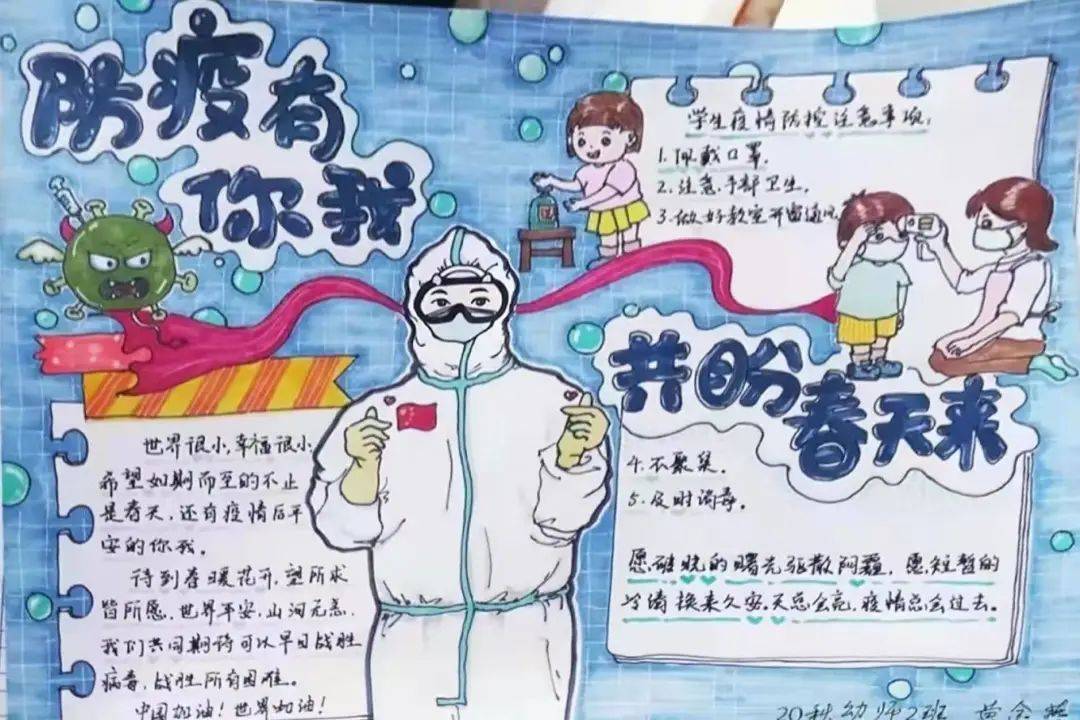 防疫有
你我
学生疫情防控注意事项:
1.佩戴口罩.
2.注意手部卫生.
3.做好教室开窗通风
共盼
春天来
4.不聚集.
5.及时询导.
世界很小,幸福很小
希望如期而至的不止
是春天,还有疫情后平
安的你我。
待到春暖花开,望所求
皆所愿,世界平安,山河无恙,
我们共同期待可以早日战胜
病毒,战胜所有困难。
中国加油!世界加油!
愿破晓的曙光驱散阴霾,愿短暂的
分离换来久安.天总会亮,疫情总会过去。
20秋幼师2班 黄